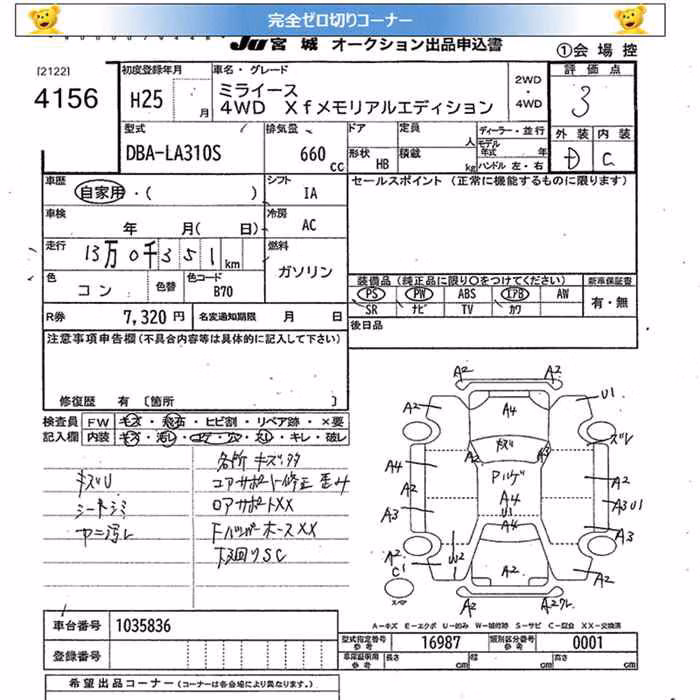 完全ゼロ切りコーナー
Ju宮城 オークション出品申込書
①会場控
[2122]
4156
初度登録年月
H25 月
車名・グレード
ミライース
4WD Xfメモリアルエディション
2WD
・
4WD
評価点
3
外装 内装
D C
型式
DBA-LA310S
排気量
660 cc
ドア
形状 HB
定員 人
積載 kg
ディーラー・並行
モデル年式 年
ハンドル 左・右
車歴
自家用・( )
シフト
IA
セールスポイント (正常に機能するものに限ります)
車検
年 月( 日)
冷房
AC
走行
13万0千351km
燃料
ガソリン
色
コン
色替
色コード
B70
装備品 (純正品に限り○をつけてください)
新車保証書
PS PW ABS エアB AW
SR ナビ TV カワ
有・無
R券 7,320円
名変通知期限 月 日
後日品
注意事項申告欄(不具合内容等は具体的に記入して下さい)
修復歴 有 〔箇所 〕
検査員
記入欄
FW キズ・飛石・ヒビ割・リペア跡・×要
内装 キズ・汚レ・コゲ・穴・スレ・キレ・破レ
キズU
シートシミ
ヤニ汚レ
各所キズ,タタ
コアサポート修正 歪み
ロアサポートXX
FバンパーホースXX
下廻りSC
A2 A2
A2 A4 U1
A2 A3 ズレ
A4 Pルーゲ A2
A2 A4 A3U1
A3 U1 A3
A4
A2 U2
C1 1 A2 A2
スペア A2 A2ワレ
A-キズ E-エクボ U-凹み W-補修跡 S-サビ C-腐食 XX-交換済
車台番号 1035836
登録番号
型式指定番号 参考 16987
類別区分番号 参考 0001
車庫証明用 参考 長さ cm 幅 cm 高さ cm
希望出品コーナー (コーナーは各会場により異なります。)